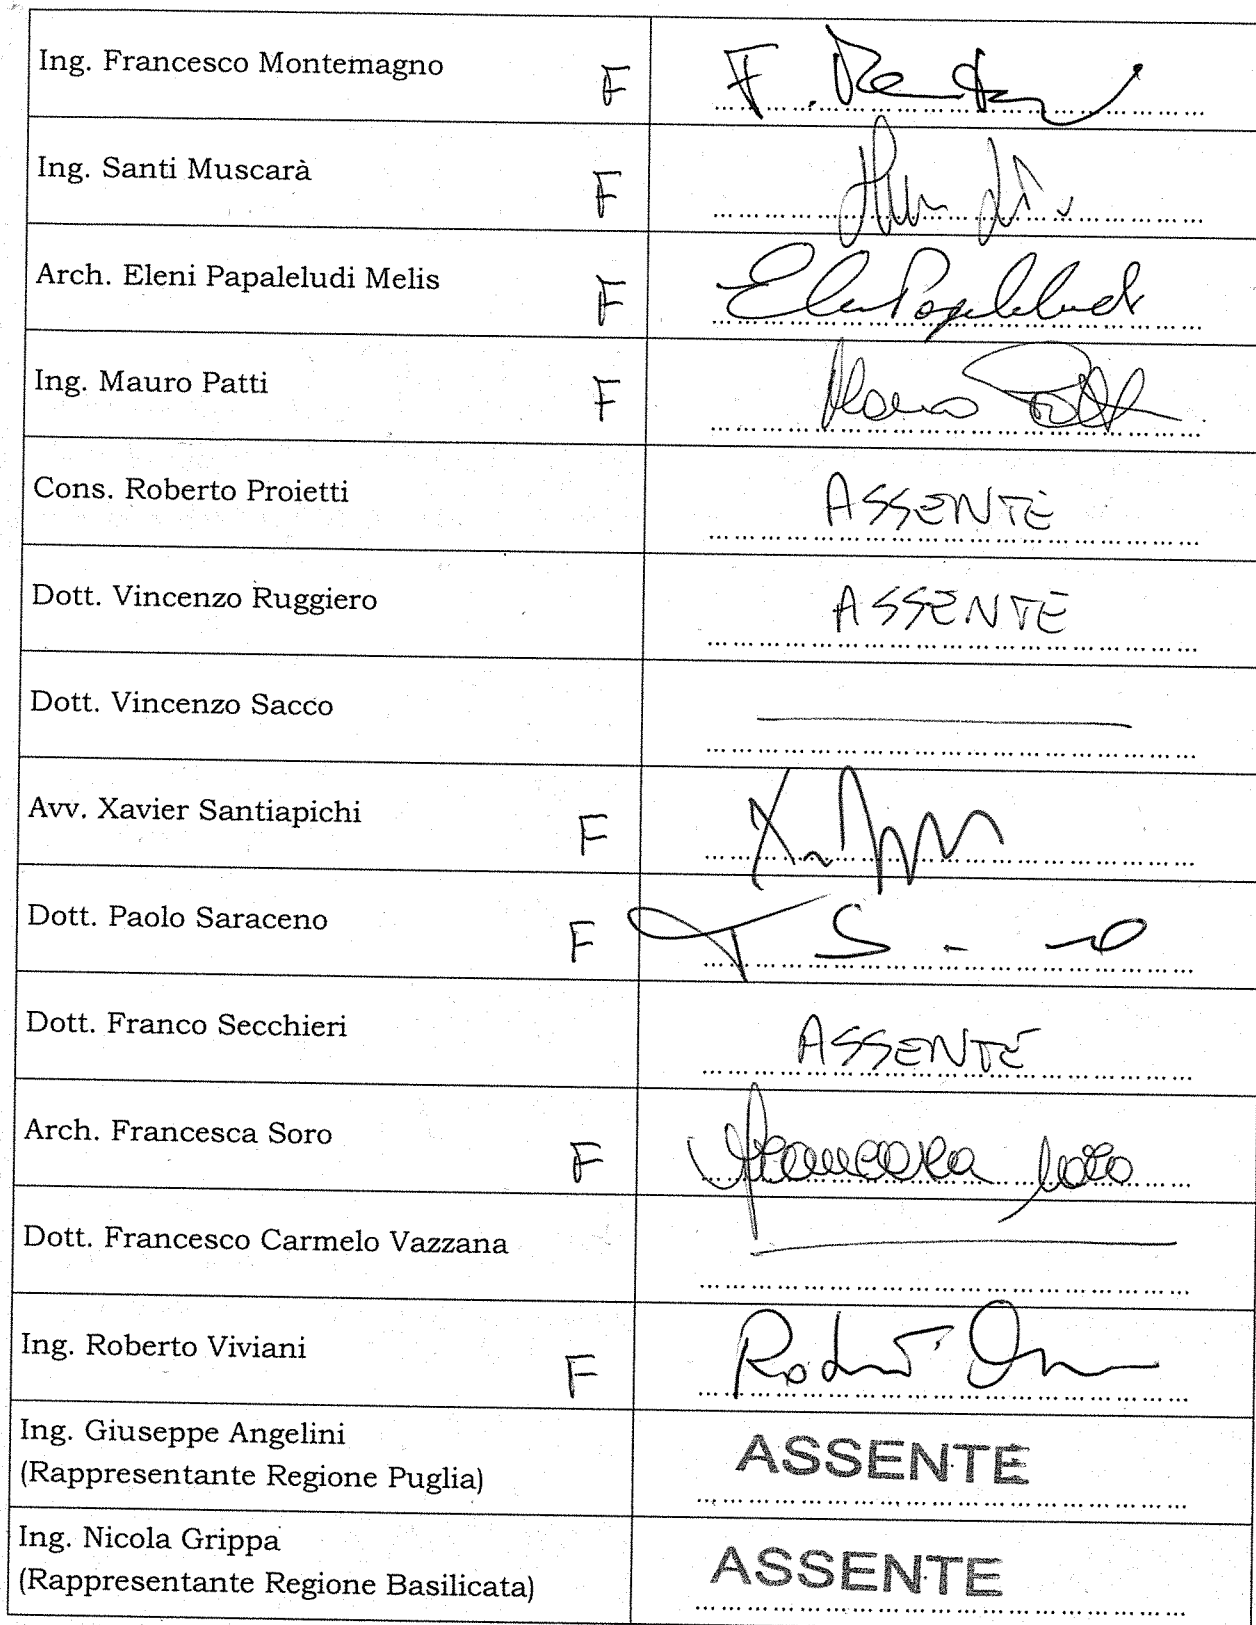 Ing. Francesco Montemagno F
Ing. Santi Muscarà F
Arch. Eleni Papaleludi Melis F
Ele Papaleludi
Ing. Mauro Patti F
Mauro Patti
Cons. Roberto Proietti ASSENTE
Dott. Vincenzo Ruggiero ASSENTE
Dott. Vincenzo Sacco
Avv. Xavier Santiapichi F
Dott. Paolo Saraceno F
Dott. Franco Secchieri ASSENTE
Arch. Francesca Soro F
Francesca Soro
Dott. Francesco Carmelo Vazzana
Ing. Roberto Viviani F
Ing. Giuseppe Angelini
(Rappresentante Regione Puglia) ASSENTE
Ing. Nicola Grippa
(Rappresentante Regione Basilicata) ASSENTE